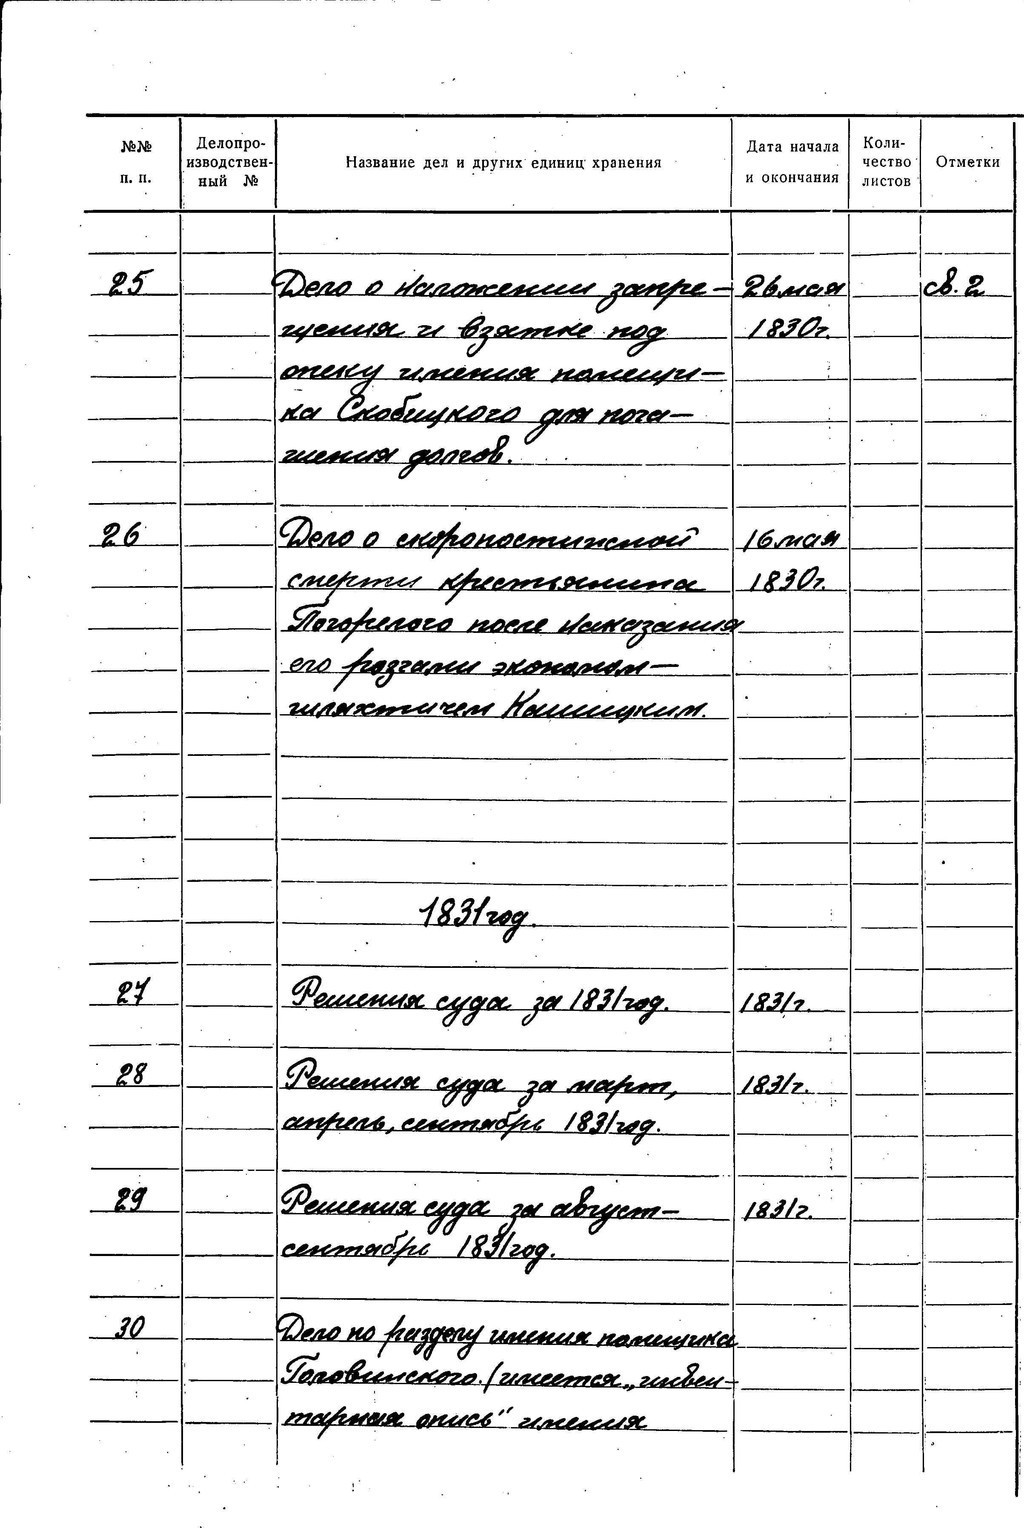 №№ п. п. Делопроизводственный № Название дел и других единиц хранения Дата начала и окончания Количество листов Отметки
25 Дело о наложении запре- 26 мая св. 2
щения и взятке под 1830г.
опеку имения помещи-
ка Скобицкого для пога-
шения долгов.
26 Дело о скоропостижной 16 мая
смерти крестьянина 1830г.
Погорелого после наказания
его розгами экономом-
шляхтичем Кошицким.
1831 год.
27 Решения суда за 1831 год. 1831г.
28 Решения суда за март, 1831г.
апрель, сентябрь 1831 год.
29 Решения суда за август- 1831г.
сентябрь 1831 год.
30 Дело по разделу имения помещика
Головинского. (имеется „инвен-
тарная опись" имения